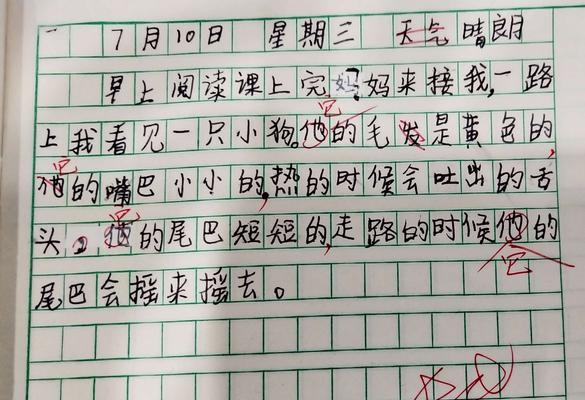 7月10日 星期三 天气晴朗
早上阅读课上完妈妈来接我,一路
它
上我看见一只小狗。他的毛发是黄色的,
它
他的嘴巴小小的,热的时候会吐出的舌
它
头。他的尾巴短短的,走路的时候他的
它
尾巴会摇来摇去。